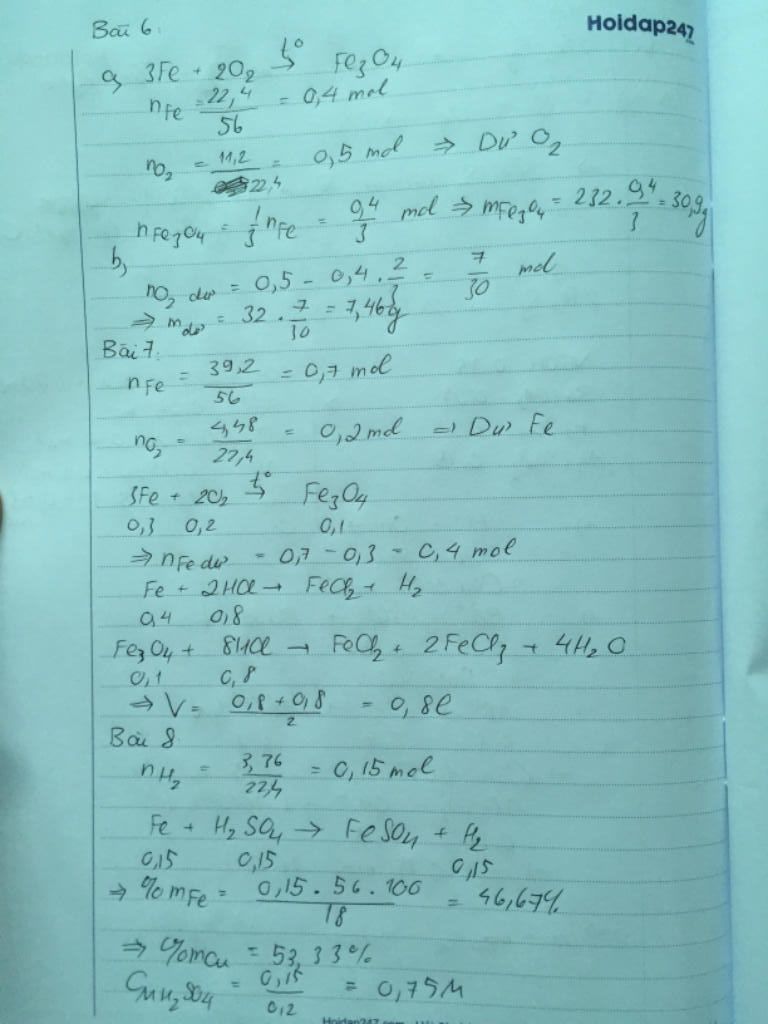 Bài 6:
Hoidap247
a, 3Fe + 2O₂ t° → Fe₃O₄
nFe = 22,4/56 = 0,4 mol
nO₂ = 11,2/22,4 = 0,5 mol ⇒ Dư O₂
nFe₃O₄ = 1/3 nFe = 0,4/3 mol ⇒ mFe₃O₄ = 232 . 0,4/3 = 30,9g
b,
nO₂ dư = 0,5 - 0,4 . 2/3 = 7/30 mol
⇒ m dư = 32 . 7/30 = 7,46g
Bài 7:
nFe = 39,2/56 = 0,7 mol
nO₂ = 4,48/22,4 = 0,2 mol ⇒ Dư Fe
3Fe + 2O₂ t° → Fe₃O₄
0,3 0,2 0,1
⇒ nFe dư = 0,7 - 0,3 = 0,4 mol
Fe + 2HCl → FeCl₂ + H₂
0,4 0,8
Fe₃O₄ + 8HCl → FeCl₂ + 2FeCl₃ + 4H₂O
0,1 0,8
⇒ V = (0,8 + 0,8)/2 = 0,8l
Bài 8
nH₂ = 3,36/22,4 = 0,15 mol
Fe + H₂SO₄ → FeSO₄ + H₂
0,15 0,15 0,15
⇒ %mFe = (0,15 . 56 . 100)/18 = 46,67%
⇒ %mCu = 53,33%
CMH₂SO₄ = 0,15/0,2 = 0,75M